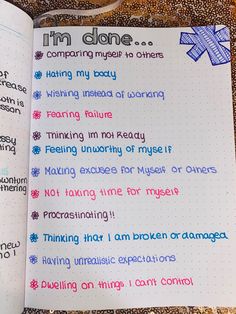 I'm done...
Comparing myself to others
Hating my body
Wishing instead of working
Fearing failure
Thinking im not Ready
Feeling unworthy of myself
Making excuses for Myself or Others
Not taking time for myself
Procrastinating!!
Thinking that I am broken or damaged
Having unrealistic expectations
Dwelling on things I can't control
of
rease
wth is
sson
ssy
wnturn
thering
new
no!